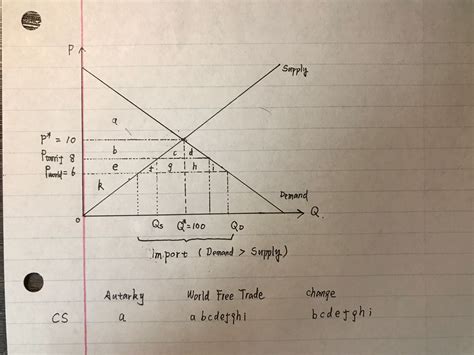 P
Supply
a
P* = 10
b
c
d
Ptariff 8
e
f
g
h
i
Pworld = 6
k
Demand
0
Qs
Q* = 100
QD
Q
import ( Demand > Supply )
Autarky
World Free Trade
change
CS
a
a b c d e f g h i
b c d e f g h i